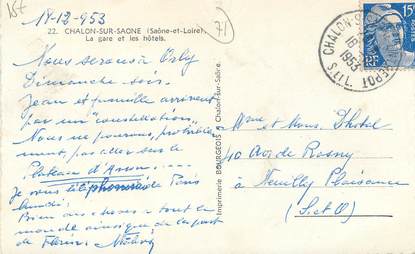 18-12-953
71
22. CHALON-SUR-SAONE (Saône-et-Loire).
La gare et les hôtels.
Nous serons à Orly
Dimanche soir.
Jean et famille arrivent
par un "constellation"
Nous ne pouvons, probable
ment, pas aller sur le
Plateau d'Avron.
Je vous téléphonerai de Paris
Lundi.
Bien des choses à tout le
monde ainsi que de la part
de
Imprimerie BOURGEOIS - Chalon-sur-Saône.
CHALON-S
DEPOT
S.ET L.
18-12
1953
15F
RF
Mme et Mons.
40 Av. de Rosny
à Neuilly Plaisance
(S. et O)